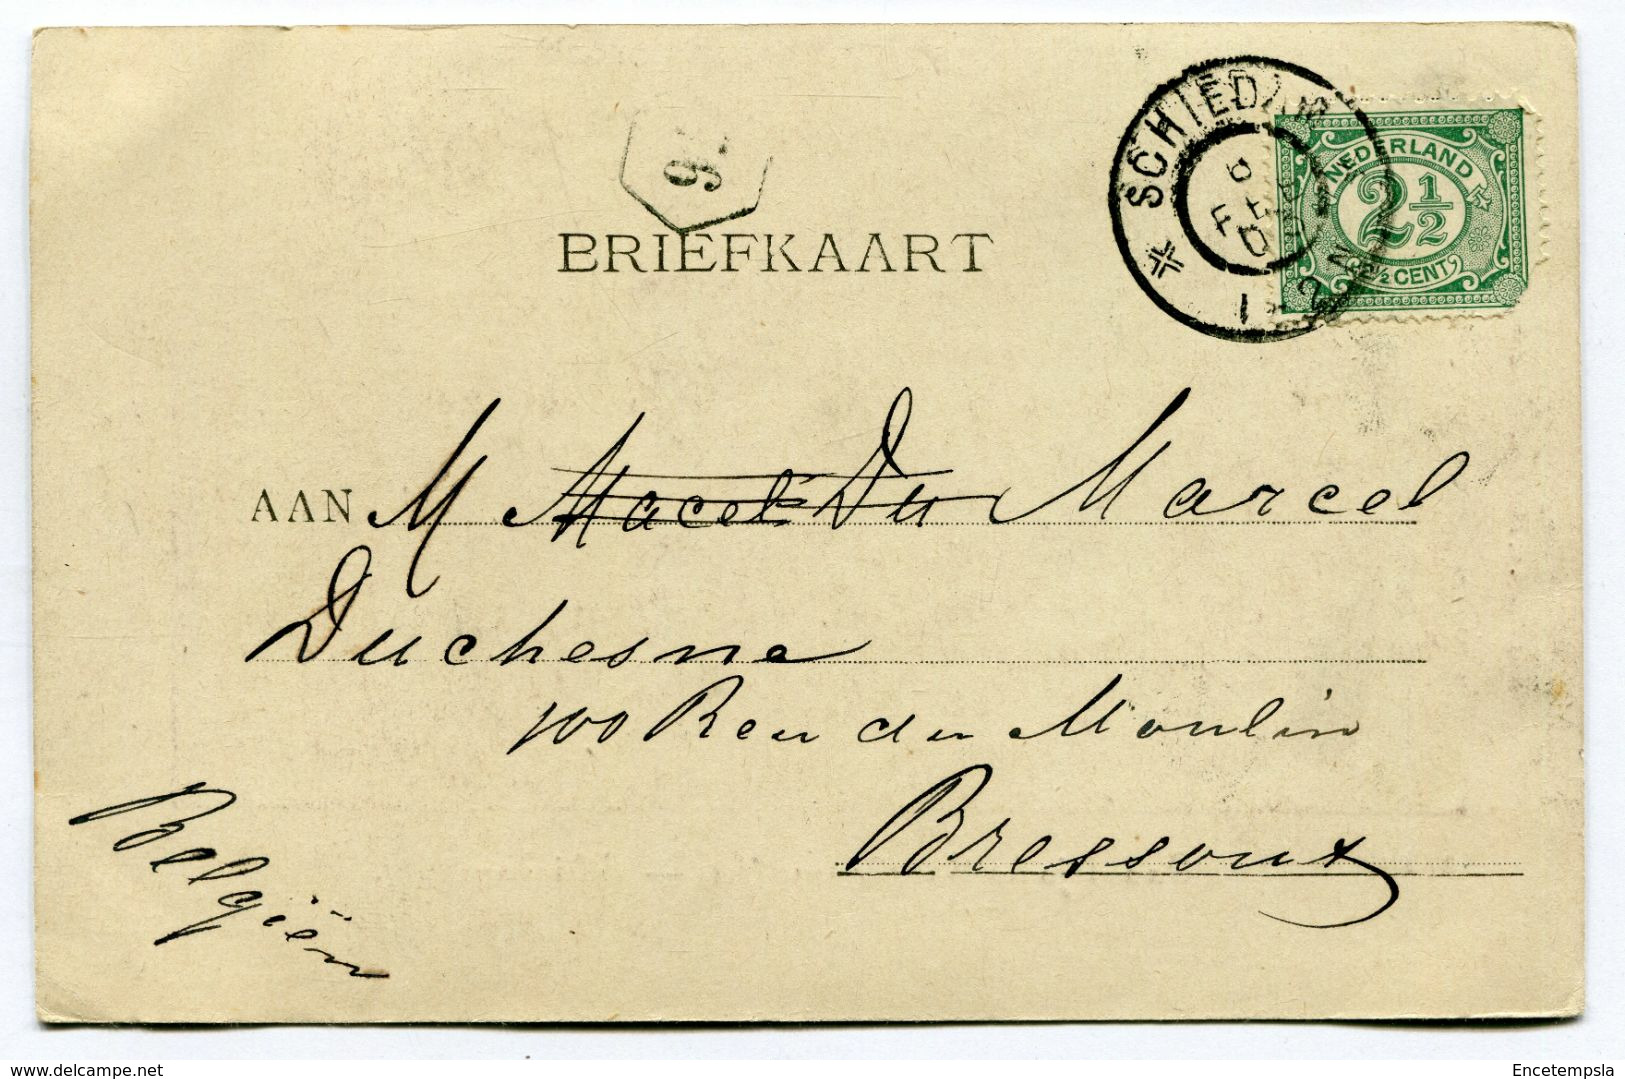 SCHIEDAM
FEB
1-2 N
NEDERLAND
2½
2½ CENT
9
BRIEFKAART
AAN M Macel Du Marcel
Duchesne
100 Reu du Moulin
Bressoux
Belgiën
delcampe.net
Encetempsla